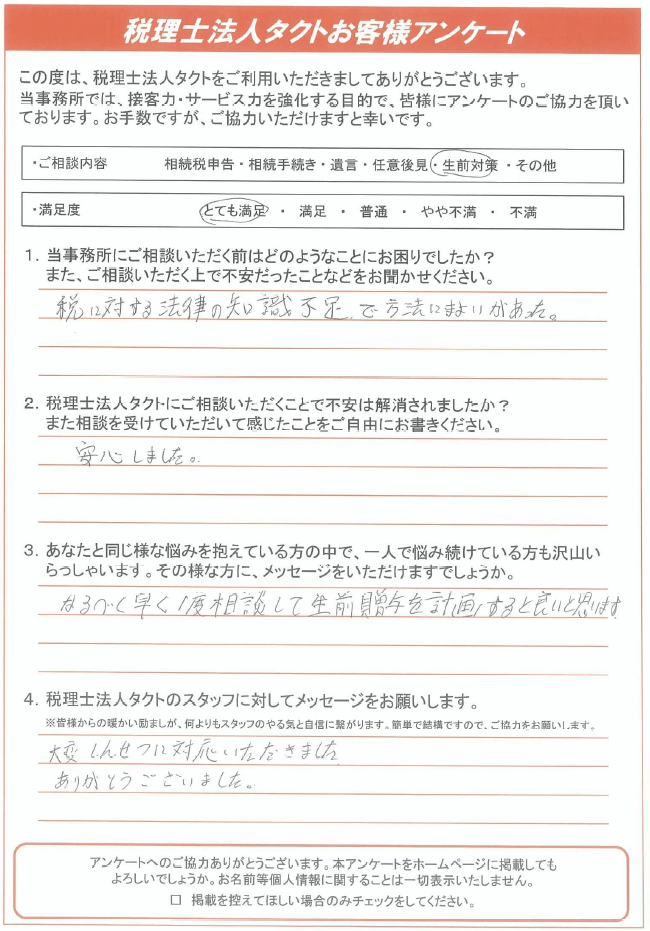 税理士法人タクトお客様アンケート
この度は、税理士法人タクトをご利用いただきましてありがとうございます。
当事務所では、接客力・サービス力を強化する目的で、皆様にアンケートのご協力を頂いております。お手数ですが、ご協力いただけますと幸いです。
・ご相談内容 相続税申告・相続手続き・遺言・任意後見・生前対策・その他
・満足度 とても満足 ・ 満足 ・ 普通 ・ やや不満 ・ 不満
1. 当事務所にご相談いただく前はどのようなことにお困りでしたか?
また、ご相談いただく上で不安だったことなどをお聞かせください。
税に対する法律の知識不足で方法にまよいがあった。
2. 税理士法人タクトにご相談いただくことで不安は解消されましたか?
また相談を受けていただいて感じたことをご自由にお書きください。
安心しました。
3. あなたと同じ様な悩みを抱えている方の中で、一人で悩み続けている方も沢山い
らっしゃいます。その様な方に、メッセージをいただけますでしょうか。
なるべく早く1度相談して生前贈与を計画すると良いと思います
4. 税理士法人タクトのスタッフに対してメッセージをお願いします。
※皆様からの暖かい励ましが、何よりもスタッフのやる気と自信に繋がります。簡単で結構ですので、ご協力をお願いします。
大変しんせつに対応いただきました
ありがとうございました。
アンケートへのご協力ありがとうございます。本アンケートをホームページに掲載しても
よろしいでしょうか。お名前等個人情報に関することは一切表示いたしません。
□ 掲載を控えてほしい場合のみチェックをしてください。